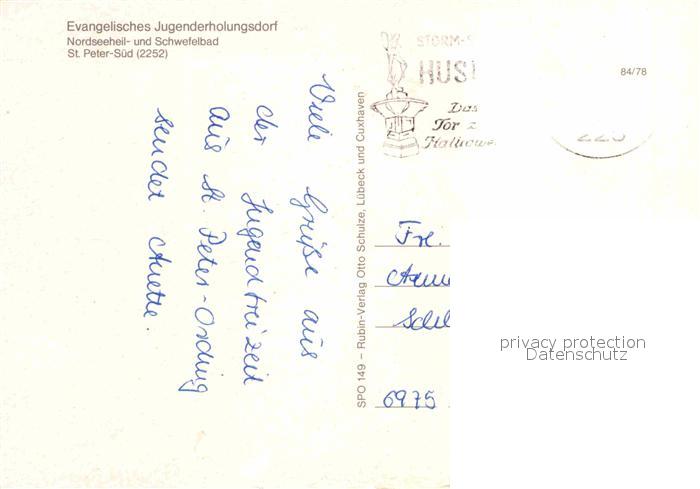 Evangelisches Jugenderholungsdorf
Nordseeheil- und Schwefelbad
St. Peter-Süd (2252)
STORM-S
HUS
Das
Tor z
84/78
Viele Grüße aus
der Jugendfreizeit
aus St. Peter-Ording
sendet Anette.
SPO 149 – Rubin-Verlag Otto Schulze, Lübeck und Cuxhaven
Frl.
6975
privacy protection
Datenschutz